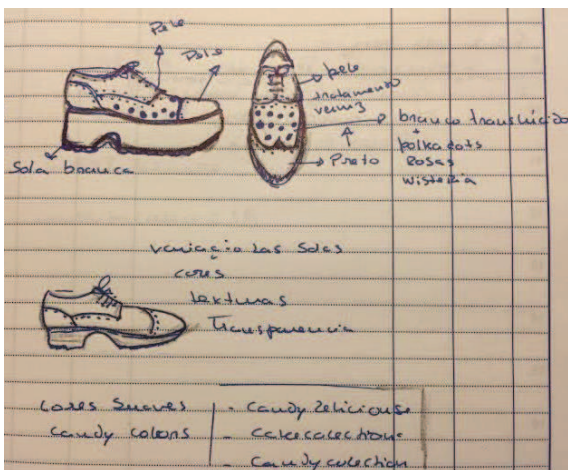 Pele
Pele
pele
tratamento
verniz
branco translúcido
+
polka dots
Rosas
wisteria
Preto
Sola branca
variação das solas
cores
texturas
Transparencia
cores suaves
candy colors
- Candy Deliciouse
- Cakecolection
- Candy colection